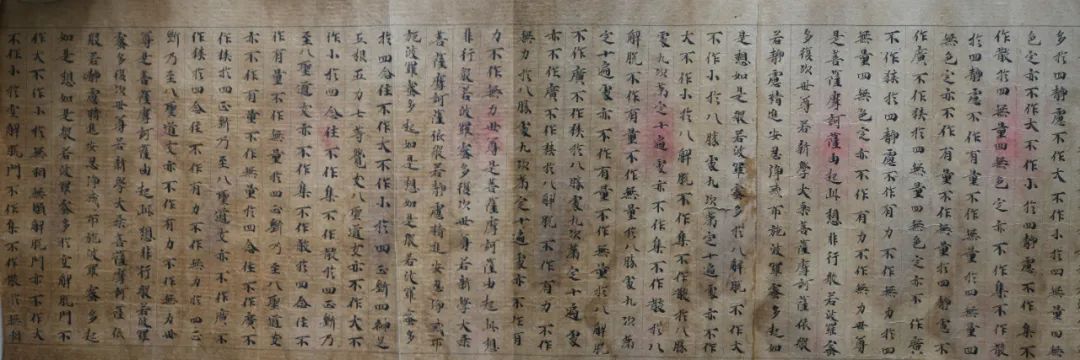 多於四靜慮不作大不作小於四無量四無
色定亦不作大不作小於四靜慮不作集不
作散於四無量四無色定亦不作集不作散
於四靜慮不作有量不作無量於四無量四
無色定亦不作有量不作無量於四靜慮不
作廣不作狹於四無量四無色定亦不作廣
不作狹於四靜慮不作有力不作無力於四
無量四無色定亦不作有力不作無力世尊
是菩薩摩訶薩由起此想非行般若波羅蜜
多復次世尊若新學大乘菩薩摩訶薩依般
若靜慮精進安忍淨戒布施波羅蜜多起如
是想如是般若波羅蜜多於八解脫不作大
不作小於八勝處九次第定十遍處亦不作
大不作小於八解脫不作集不作散於八勝
處九次第定十遍處亦不作集不作散於八
解脫不作有量不作無量於八勝處九次第
定十遍處亦不作有量不作無量於八解脫
不作廣不作狹於八勝處九次第定十遍處
亦不作廣不作狹於八解脫不作有力不作
無力於八勝處九次第定十遍處亦不作有
力不作無力世尊是菩薩摩訶薩由起此想
非行般若波羅蜜多復次世尊若新學大乘
菩薩摩訶薩依般若靜慮精進安忍淨戒布
施波羅蜜多起如是想如是般若波羅蜜多
於四念住不作大不作小於四正斷四神足
五根五力七等覺支八聖道支亦不作大不
作小於四念住不作集不作散於四正斷乃
至八聖道支亦不作集不作散於四念住不
作有量不作無量於四正斷乃至八聖道支
亦不作有量不作無量於四念住不作廣不
作狹於四正斷乃至八聖道支亦不作廣不
作狹於四念住不作有力不作無力於四正
斷乃至八聖道支亦不作有力不作無力世
尊是菩薩摩訶薩由起此想非行般若波羅
蜜多復次世尊若新學大乘菩薩摩訶薩依
般若靜慮精進安忍淨戒布施波羅蜜多起
如是想如是般若波羅蜜多於空解脫門不
作大不作小於無相無願解脫門亦不作大
不作小於空解脫門不作集不作散於無相